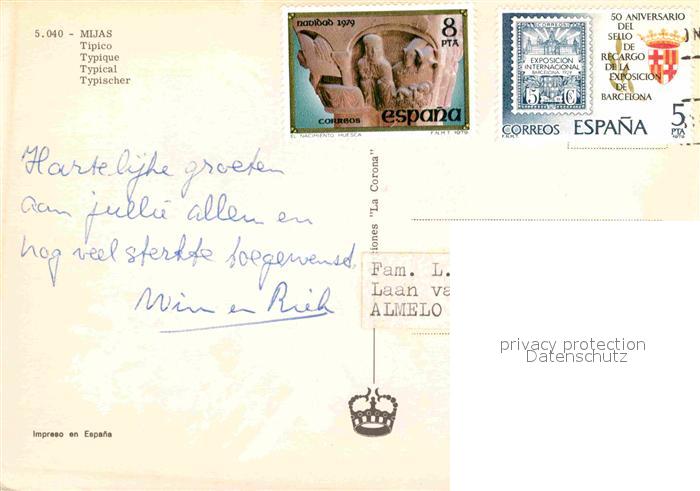 5.040 - MIJAS
Típico
Typique
Typical
Typischer
navidad 1979
8
PTA
CORREOS
españa
EL NACIMIENTO HUESCA
F.N.M.T. 1979
50 ANIVERSARIO
DEL
SELLO
DE
RECARGO
DE LA
EXPOSICION
DE
BARCELONA
EXPOSICION
INTERNACIONAL
BARCELONA 1929
5 C
CORREOS ESPAÑA
5
PTA
1979
F.N.M.T.
Hartelijke groeten
aan jullie allen en
nog veel sterkte toegewenst
Wim en Riek
iones "La Corona"
Fam. L.
Laan va
ALMELO
privacy protection
Datenschutz
Impreso en España